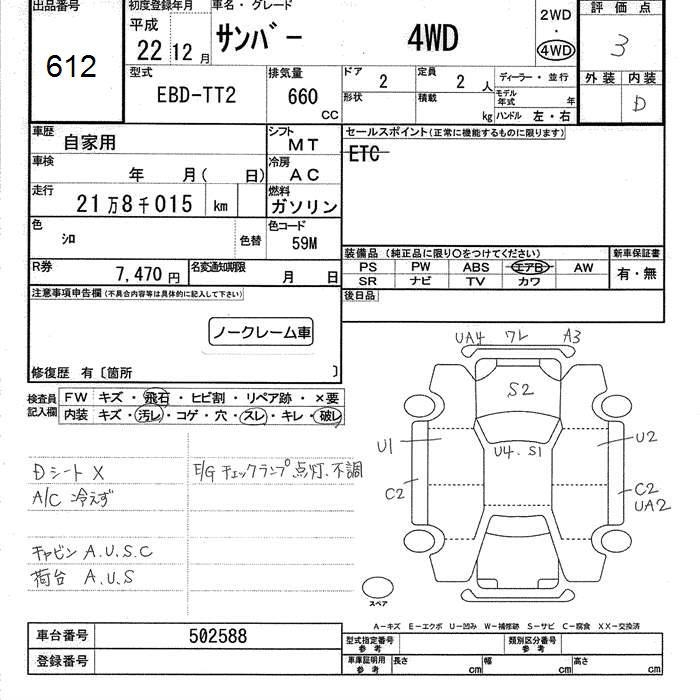 出品番号 初度登録年月 車名・グレード 評価点
612 平成 22 12月 サンバー 4WD 2WD・4WD 3
型式 排気量 ドア 2 定員 2人 ディーラー・並行 外装 内装
EBD-TT2 660 CC 形状 積載 kg モデル年式 年 ハンドル 左・右 D
車歴 自家用 シフト MT セールスポイント(正常に機能するものに限ります)
車検 年 月( 日) 冷房 AC ETC
走行 21万8千015 km 燃料 ガソリン
色 シロ 色替 色コード 59M
装備品 (純正品に限り○をつけてください) 新車保証書
R券 7,470円 名変通知期限 月 日 PS PW ABS エアB AW 有・無
SR ナビ TV カワ
注意事項申告欄(不具合内容等は具体的に記入して下さい) 後日品
ノークレーム車
修復歴 有〔箇所 〕
検査員記入欄 FW キズ・飛石・ヒビ割・リペア跡・×要
内装 キズ・汚レ・コゲ・穴・スレ・キレ・破レ
UA4 ワレ A3
S2
U1 U4.S1 U2
C2 C2
UA2
Dシート X E/Gチェックランプ点灯.不調
A/C 冷えず
キャビン A.U.S.C
荷台 A.U.S
スペア
A-キズ E-エクボ U-凹み W-補修跡 S-サビ C-腐食 XX-交換済
車台番号 502588 型式指定番号 参考 類別区分番号 参考
登録番号 車庫証明用 参考 長さ cm 幅 cm 高さ cm